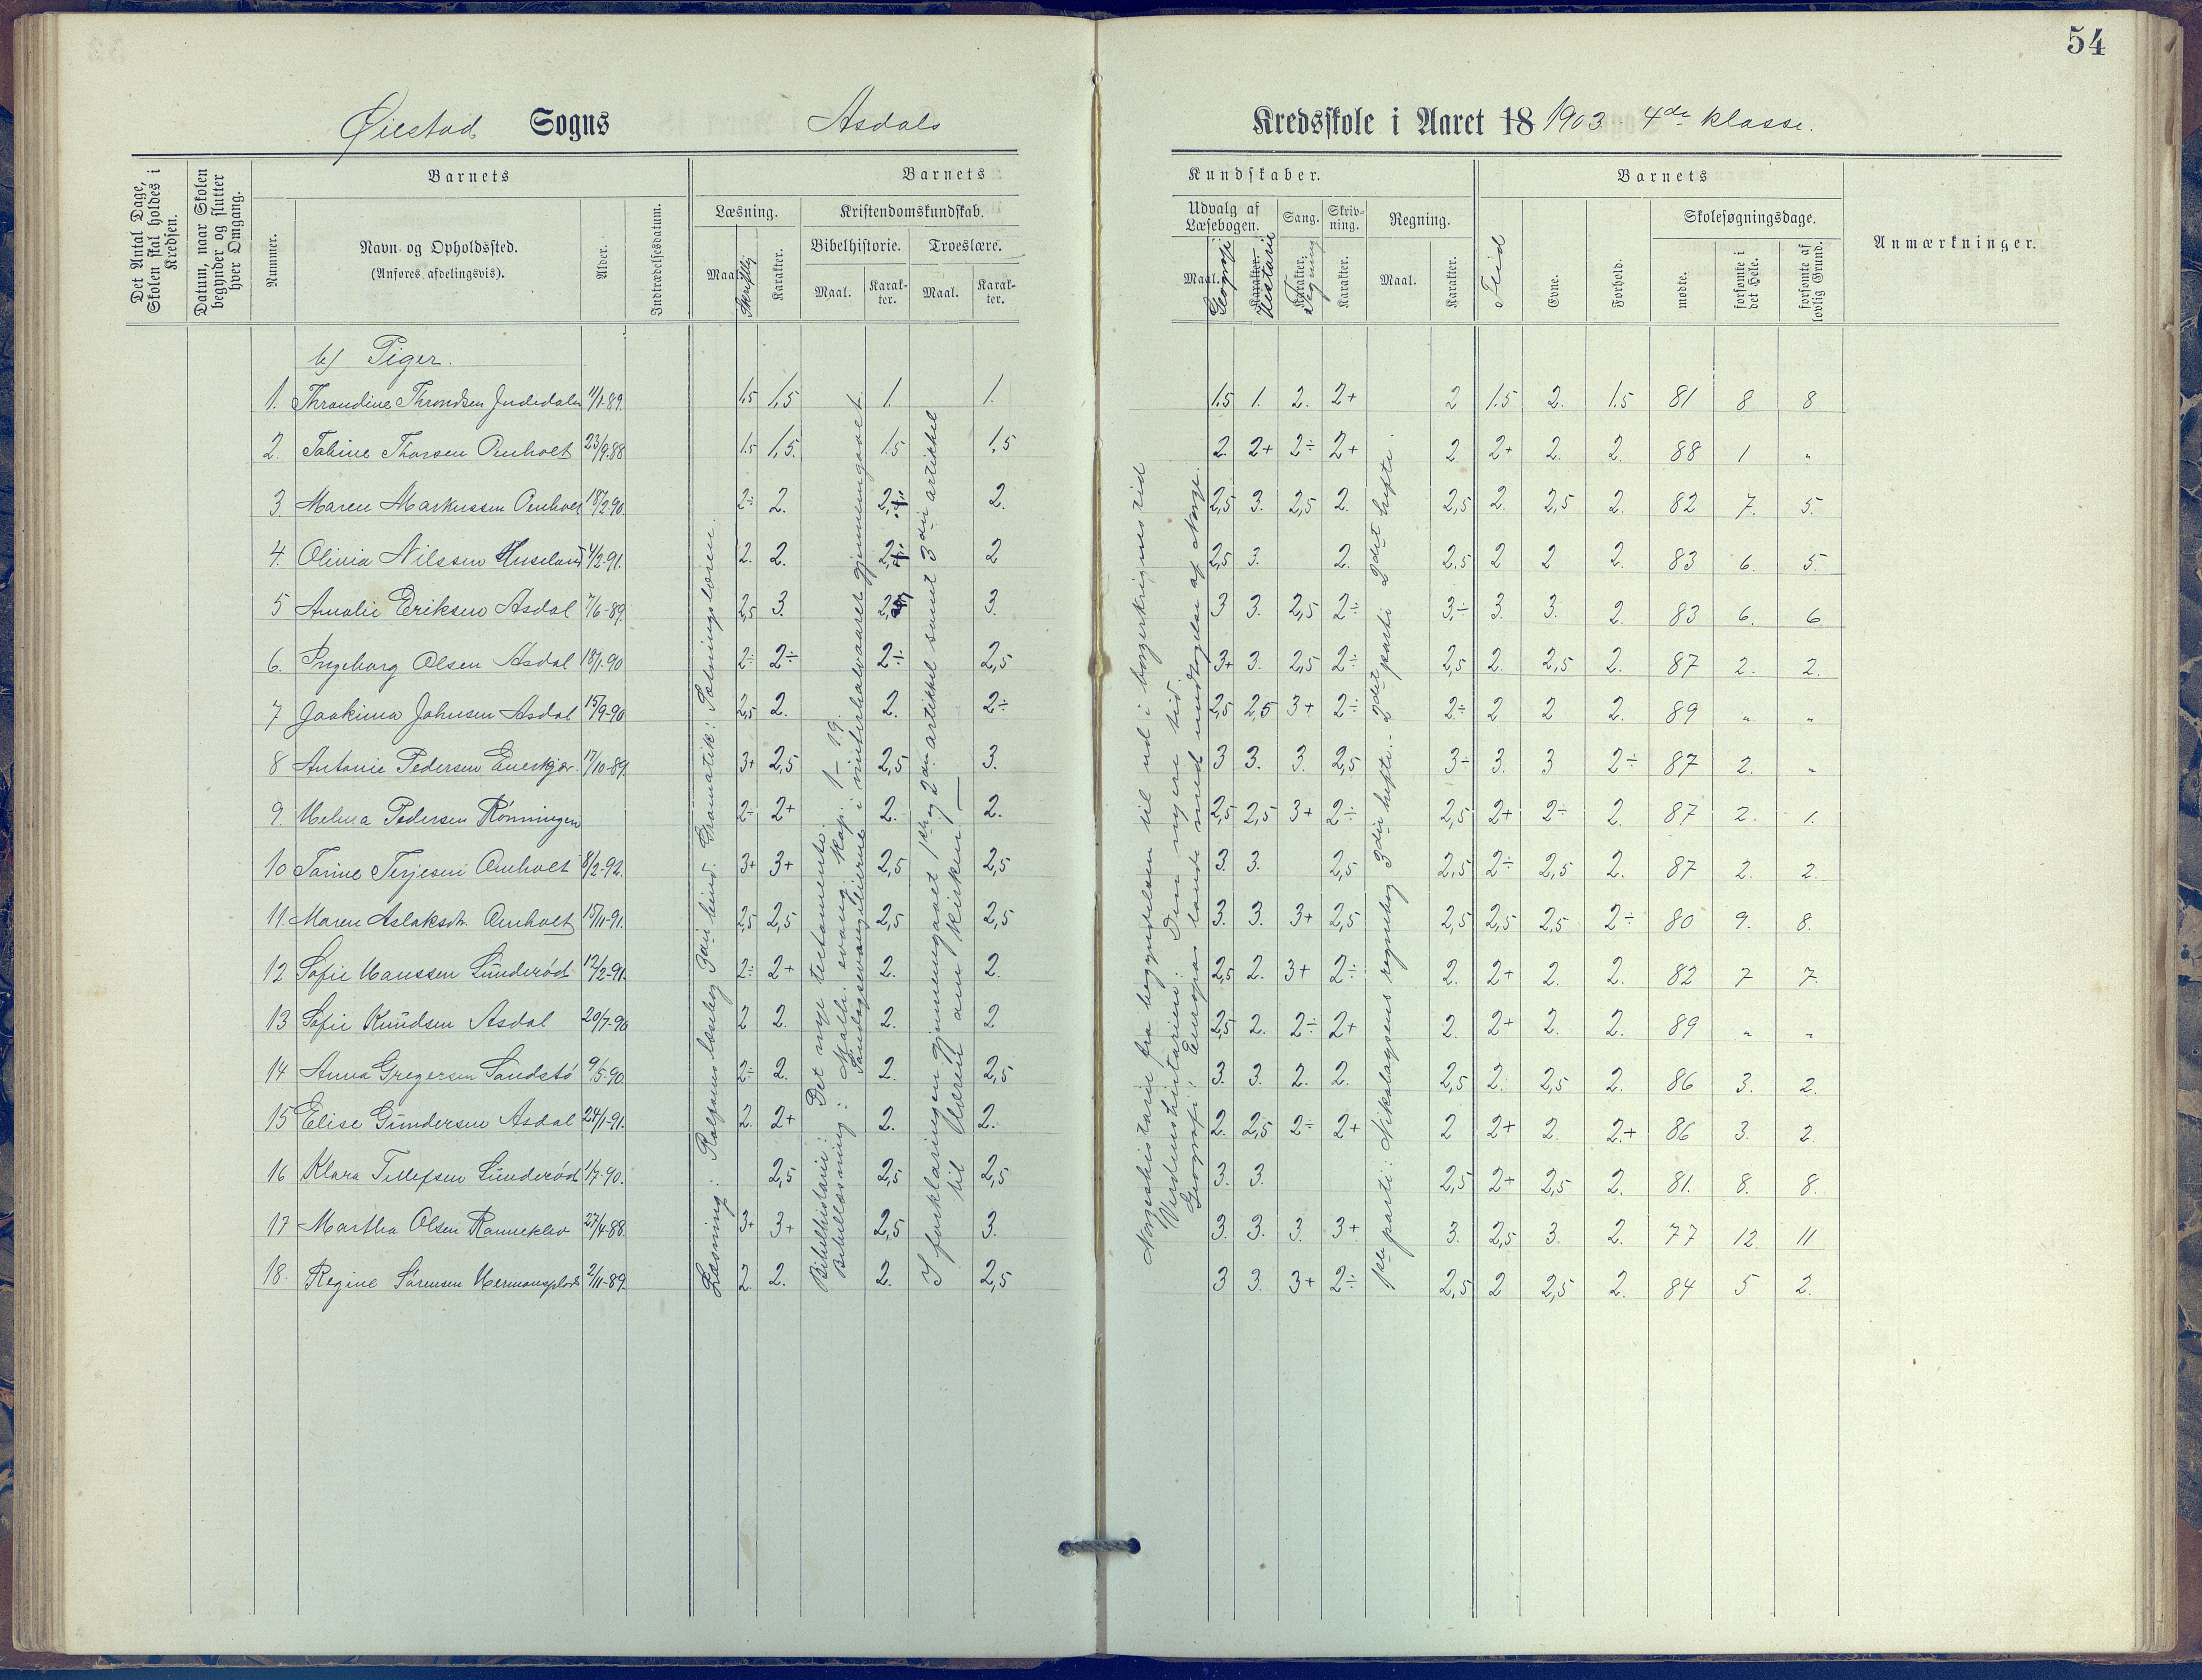 54
Øiestad Sogns Asdals Kredsskole i Aaret 18 1903 4de klasse.
Det Antal Dage, Skolen skal holdes i Kredsen.
Datum, naar Skolen begynder og slutter hver Omgang.
Barnets
Nummer.
Navn og Opholdssted.
(Anføres afdelingsvis).
Alder.
Indtrædelsesdatum.
Barnets Kundskaber.
Læsning.
Maal. Skriftlig Karakter.
Kristendomskundskab.
Bibelhistorie. Troeslære.
Maal. Karakter. Maal. Karakter.
Udvalg af Læsebogen. Sang. Skrivning. Regning.
Maal. Geografi Karakter. Historie Karakter. Tegning Karakter. Maal. Karakter.
Barnets
Flid Evne. Forhold.
Skolesøgningsdage.
mødte. forsømte i det Hele. forsømte af lovlig Grund.
Anmærkninger.
b) Piger.
1. Throndine Throndsen 11/1-89. 1,5 1,5 1. 1. 1,5 1. 2. 2+ 2 1.5 2. 1.5 81 8 8
2. Tabine Thorsen Omholt 23/9.88 1.5 1,5. 1.5 1,5 2. 2+ 2÷ 2+ 2. 2+ 2. 2. 88 1 "
3. Maren Markussen Omholt 18/2.90 2÷ 2. 2. 2,5 3. 2,5 2. 2,5 2. 2,5 2. 82 7. 5.
4. Olivia Nilssen Huseland 4/2-91. 2. 2. 2 2,5 3. 2. 2,5 2 2 2. 83 6. 5.
5 Amalie Eriksen Asdal 7/6-89. 2,5 3. 3. 3 3. 2,5 2÷ 3÷ 3. 3. 2. 83 6. 6
6. Ingeborg Olsen Asdal 18/1-90 2÷ 2÷ 2÷ 2,5 3+ 3. 2,5 2÷ 2,5 2. 2,5 2. 87 2. 2.
7 Joakima Johnsen Asdal 15/9-90 2,5 2. 2. 2÷ 2,5 2,5 3+ 2÷ 2÷ 2 2 2. 89 " "
8 Antonie Pedersen Enerkjær. 17/10-89. 3+ 2,5 2,5 3. 3 3. 3. 2,5 3÷ 3. 3 2÷ 87 2. "
9. Helma Pedersen Rønningen 2÷ 2+ 2. 2. 2,5 2,5 3+ 2÷ 2,5 2+ 2÷ 2. 87 2. 1.
10 Tarine Terjesen Omholt 8/2-92. 3+ 3+ 2,5 2,5 3. 3. 2,5 2,5 2÷ 2,5 2. 87 2. 2.
11. Maren Aslaksdtr. Omholt 15/11-91. 2,5 2,5 2,5 2,5 3. 3. 3+ 2,5 2,5 2,5 2,5 2÷ 80 9. 8.
12 Sofie Hanssen Sünderød 12/2-91. 2÷ 2+ 2. 2. 2,5 2. 3+ 2÷ 2. 2+ 2. 2. 82 7 7.
13 Sofie Knüdsen Asdal 20/7-90 2 2. 2. 2 2,5 2. 2÷ 2+ 2. 2+ 2. 2. 89 " "
14 Anna Gregersen Sandstø 9/5-90. 2÷ 2. 2. 2,5 3. 3. 2. 2. 2,5 2. 2,5 2. 86 3. 2.
15 Elise Gündersen Asdal 24/1-91. 2. 2+ 2. 2. 2. 2,5 2÷ 2+ 2 2+ 2. 2.+ 86 3. 2.
16 Klara Tellefsen Sünderød 1/7-90. 2,5 2,5 2,5 3. 3. 2,5 2+ 2,5 2. 81. 8. 8.
17 Martha Olsen Ranneklev 27/4-88. 3+ 3+ 2,5 3. 3. 3. 3. 3+ 3. 2,5 3. 2. 77 12. 11
18. Regine Sørensen Hermansplads 2/11-89. 2. 2. 2. 2,5 3 3. 3+ 2÷ 2,5 2 2,5 2. 84 5 2.
Læsning: Rolfsens læsebog 3die bind. Gramatik: Sætningslæren.
Bibelhistorie: Det nye testamente.
Bibellæsning: Math. evang. kap: 1–19.
Søndagsevangelierne i vinterhalvaaret gjennemgaaet.
I forklaringen gjennemgaaet 1ste og 2den artikkel samt 3die artikkel
til Læren om kirken.
Norgeshistorie fra begyndelsen til ud i borgerkrigens tid
Verdenshistorien: Den nyere tid.
Geografi: Europas lande med undtagelse af Norge.
1ste parti: Nikolaysens regnebog 3die hefte. – 2det parti 2det hefte.